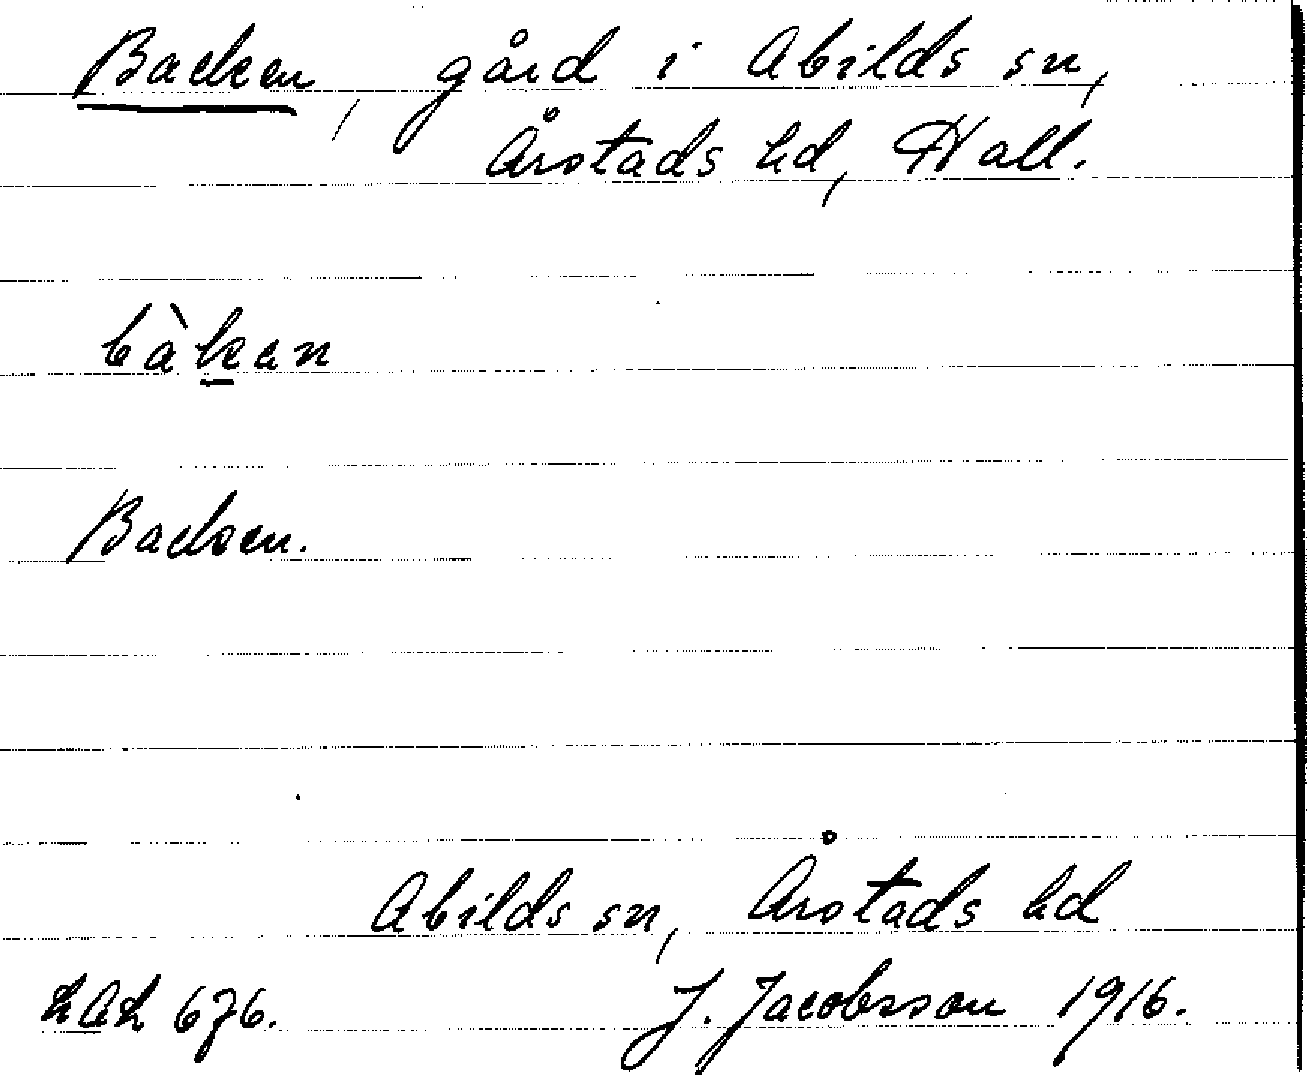 Backen, gård i Abilds sn,
Årstads hd, Hall.
bàkan
Backen.
Abilds sn, Årstads hd
676.
J. Jacobsson 1916.